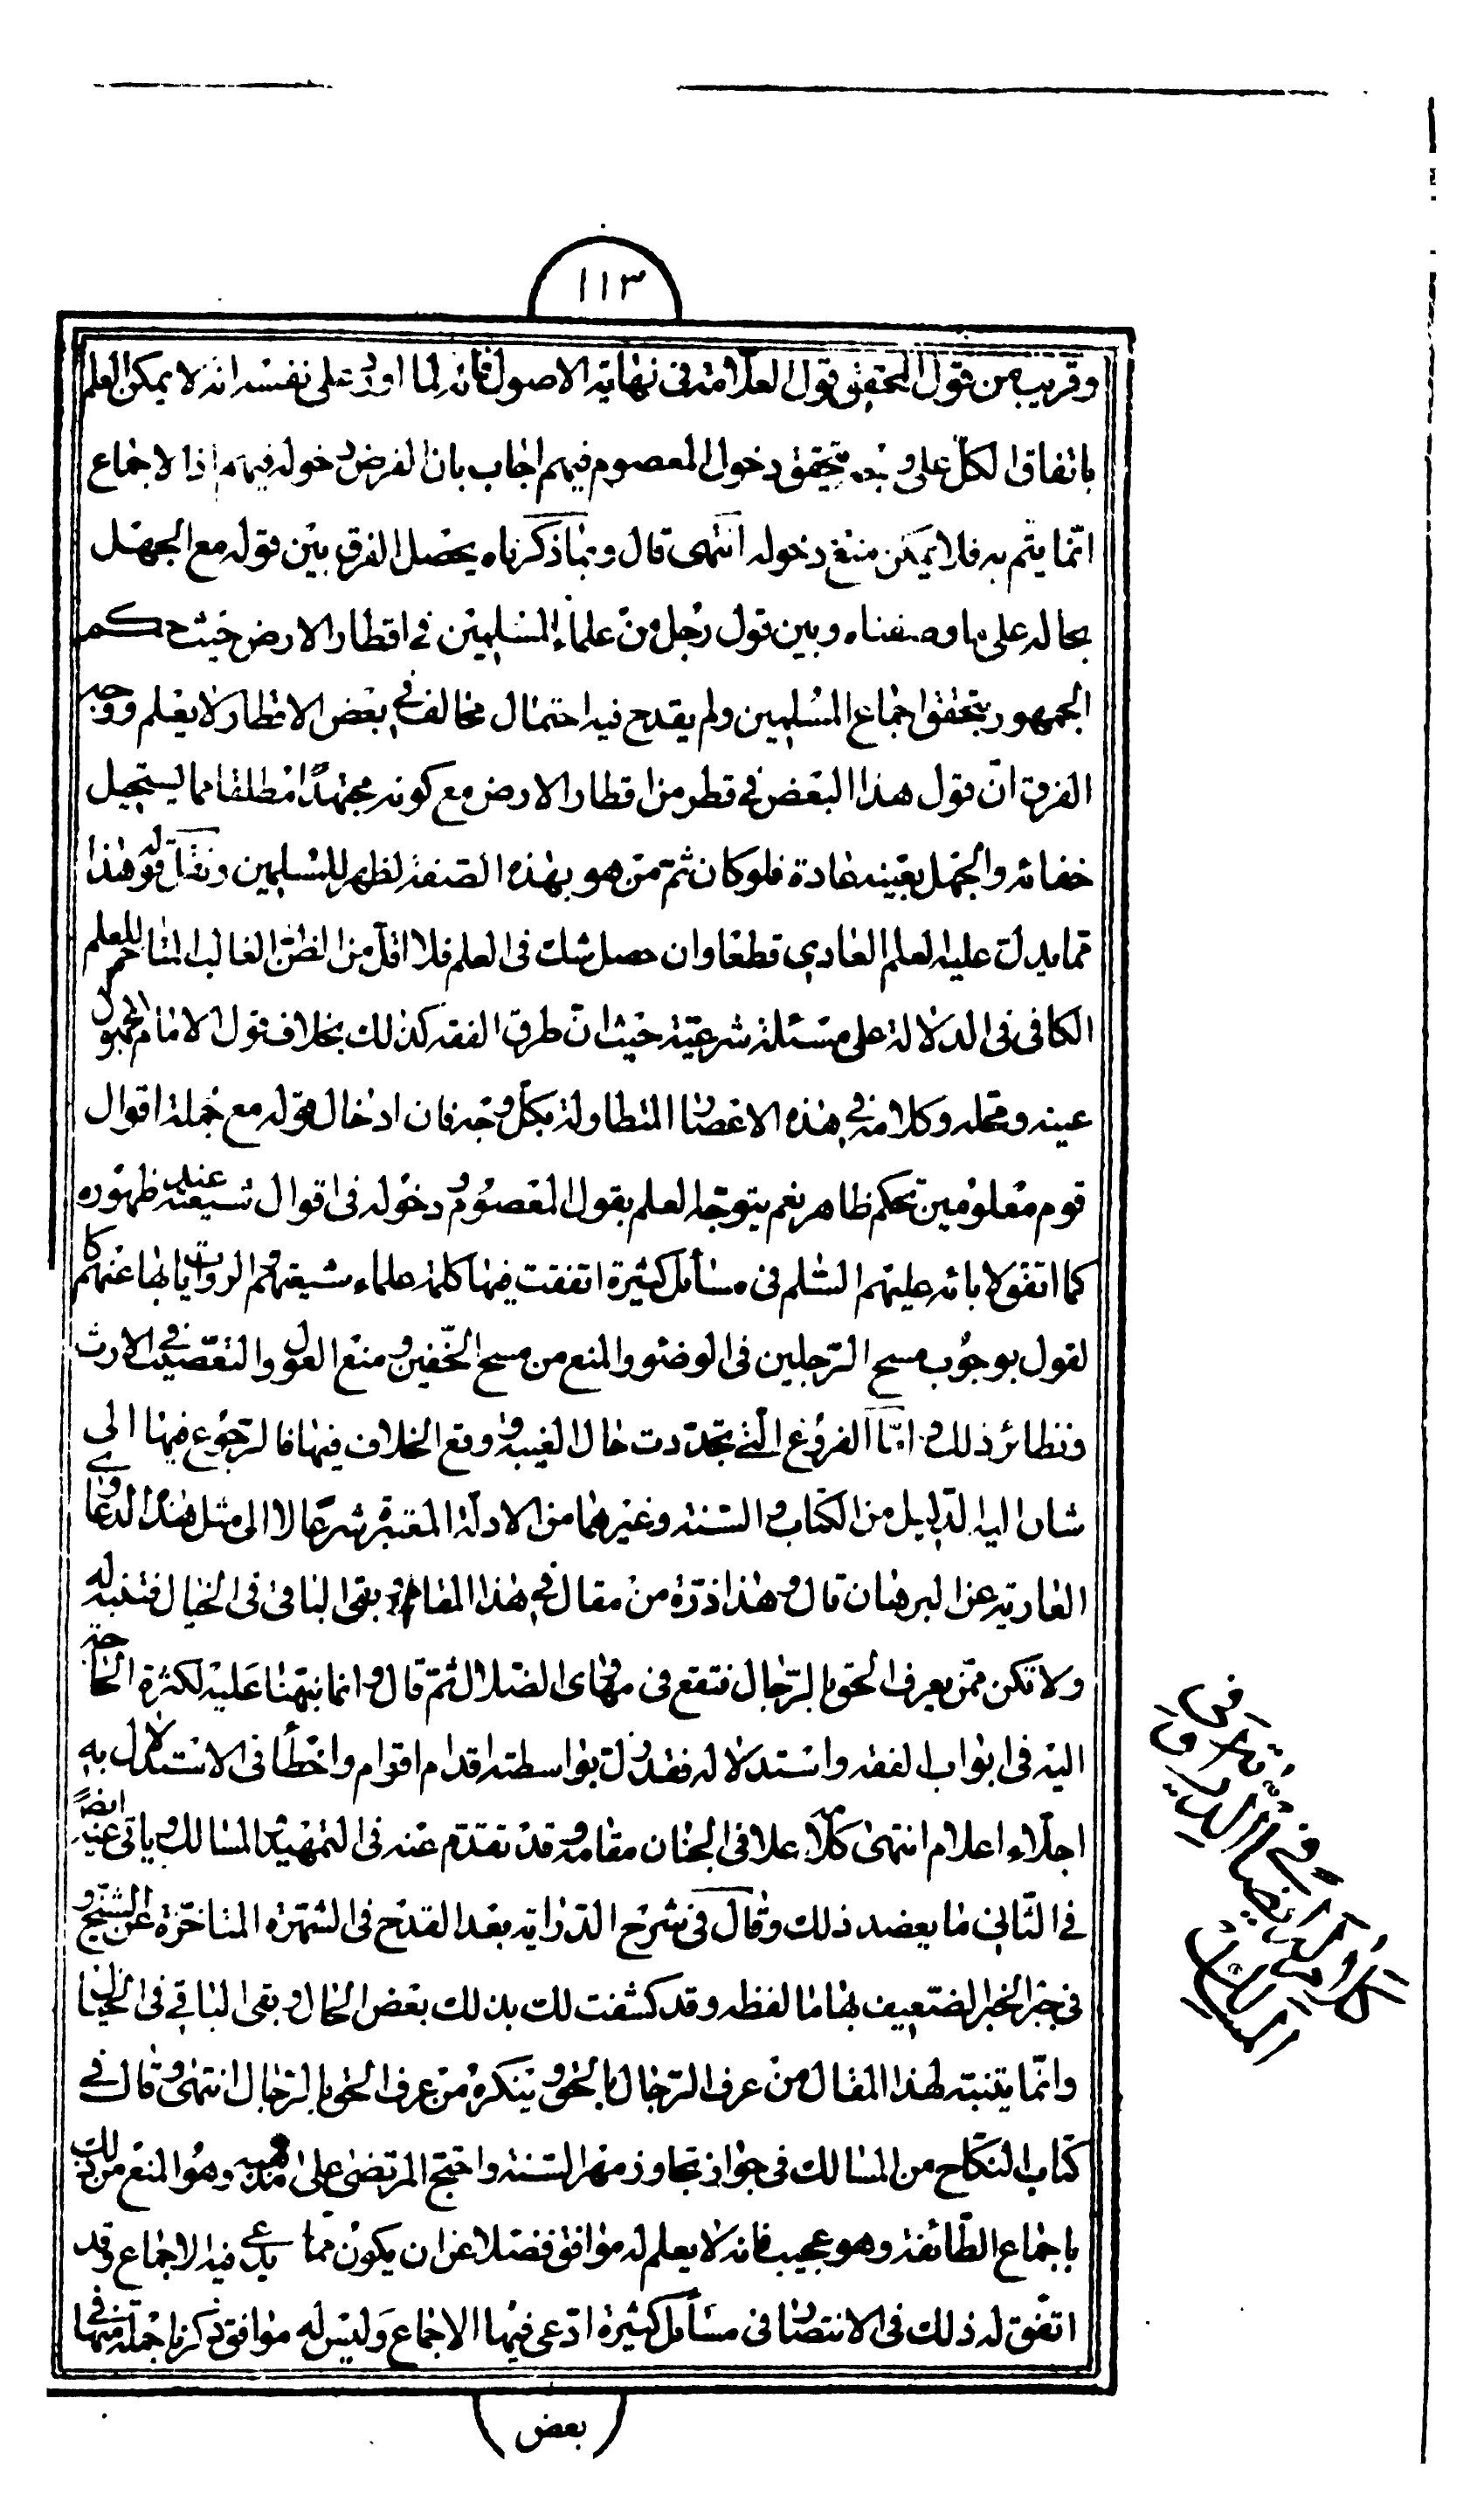 ١١٣
وقريب من قول المحقق قول العلامة في نهاية الاصول فانه لما اورد على نفسه انه لا يمكن العلم
باتفاق الكل على وجه يتحقق دخول المعصوم فيهم اجاب بان الفرض دخوله فيهم اذ الاجماع
انما يتم به فلا يمكن منع دخوله انتهى قال وبما ذكرناه يحصل الفرق بين قوله مع الجهل
بحاله على ما وصفناه وبين قول رجل من علماء المسلمين في اقطار الارض حيث حكم
الجمهور بتحقق اجماع المسلمين ولم يقدح فيه احتمال مخالف في بعض الاقطار لا يعلم ووجه
الفرق ان قول هذا البعض في قطر من اقطار الارض مع كونه مجتهدا مطلقا مما يستحيل
خفائه والجهل بعينه عادة فلو كان ثم من هو بهذه الصفة لظهر للمسلمين ونقل قوله وهذا
مما يدل عليه العلم العادي قطعا وان حصل شك في العلم فلا اقل من الظن الغالب المتاخم للعلم
الكافي في الدلالة على مسئلة شرعية حيث ان طرق الفقه كذلك بخلاف قول الامام المجهول
عينه ومحله وكلامه في هذه الاعصار المتطاولة بكل وجه فان ادخال قوله مع جملة اقوال
قوم معلومين تحكم ظاهر نعم يتوجه العلم بقول المعصوم ودخوله في اقوال شيعته عند ظهوره
كما اتفق لابائه عليهم السلم في مسائل كثيرة اتفقت فيها كلمة علماء شيعتهم والروايات بها عنهم كا
لقول بوجوب مسح الرجلين في الوضوء والمنع من مسح الخفين ومنع العول والتعصيب في الارث
ونظائر ذلك واما الفروع التي تجددت حال الغيبة ووقع الخلاف فيها فالرجوع فيها الى
ما ساق اليه الدليل من الكتاب والسنة وغيرهما من الادلة المعتبرة شرعا لا الى مثل هذه الدعاوى
العارية عن البرهان قال وهذا ذرة من مقال في هذا المقام وبقى الباقى في الخيال فتنبه له
ولا تكن ممن يعرف الحق بالرجال فتقع في مهاوى الضلال ثم قال وانما نبهنا عليه لكثرة الحاجة
اليه في ابواب الفقه واستدلاله فقد زلت بواسطته اقدام اقوام واخطأ في الاستدلال به
اجلاء اعلام انتهى كلامه علا في الجنان مقامه وقد تقدم عنه في التمهيد والمسالك وياتى عنه ايضا
في الثاني ما يعضد ذلك وقال في شرح الدراية بعد القدح في الشهرة المتاخرة عن الشيخ
في جبر الخبر الضعيف بها ما لفظه وقد كشفت لك بذلك بعض الحال وبقى الباقي في الخيال
وانما يتنبه لهذا المقال من عرف الرجال بالحق وينكره من عرف الحق بالرجال انتهى وقال في
كتاب النكاح من المسالك في جواز تجاوز مهر السنة واحتج المرتضى على مذهبه وهو المنع من ذلك
باجماع الطائفة وهو عجيب فانه لا يعلم له موافق فضلا عن ان يكون مما يدعى فيه الاجماع وقد
اتفق له ذلك في الانتصار في مسائل كثيرة ادعى فيها الاجماع وليس له موافق ذكرنا جملة منها في
بعض